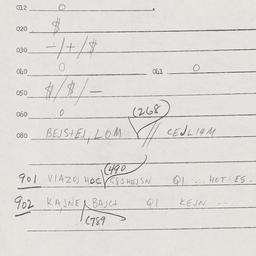 012 0
020 $
030 -/+/$
040 0 041 0
050 $/$/-
060 0 (268)
080 BEJSTEJ, LOM // CEDLIHM
(490)
901 VIAZOJ HOC QI ... HOT ES.
902 KAJNE BAJCA QI KEJN ..
(789